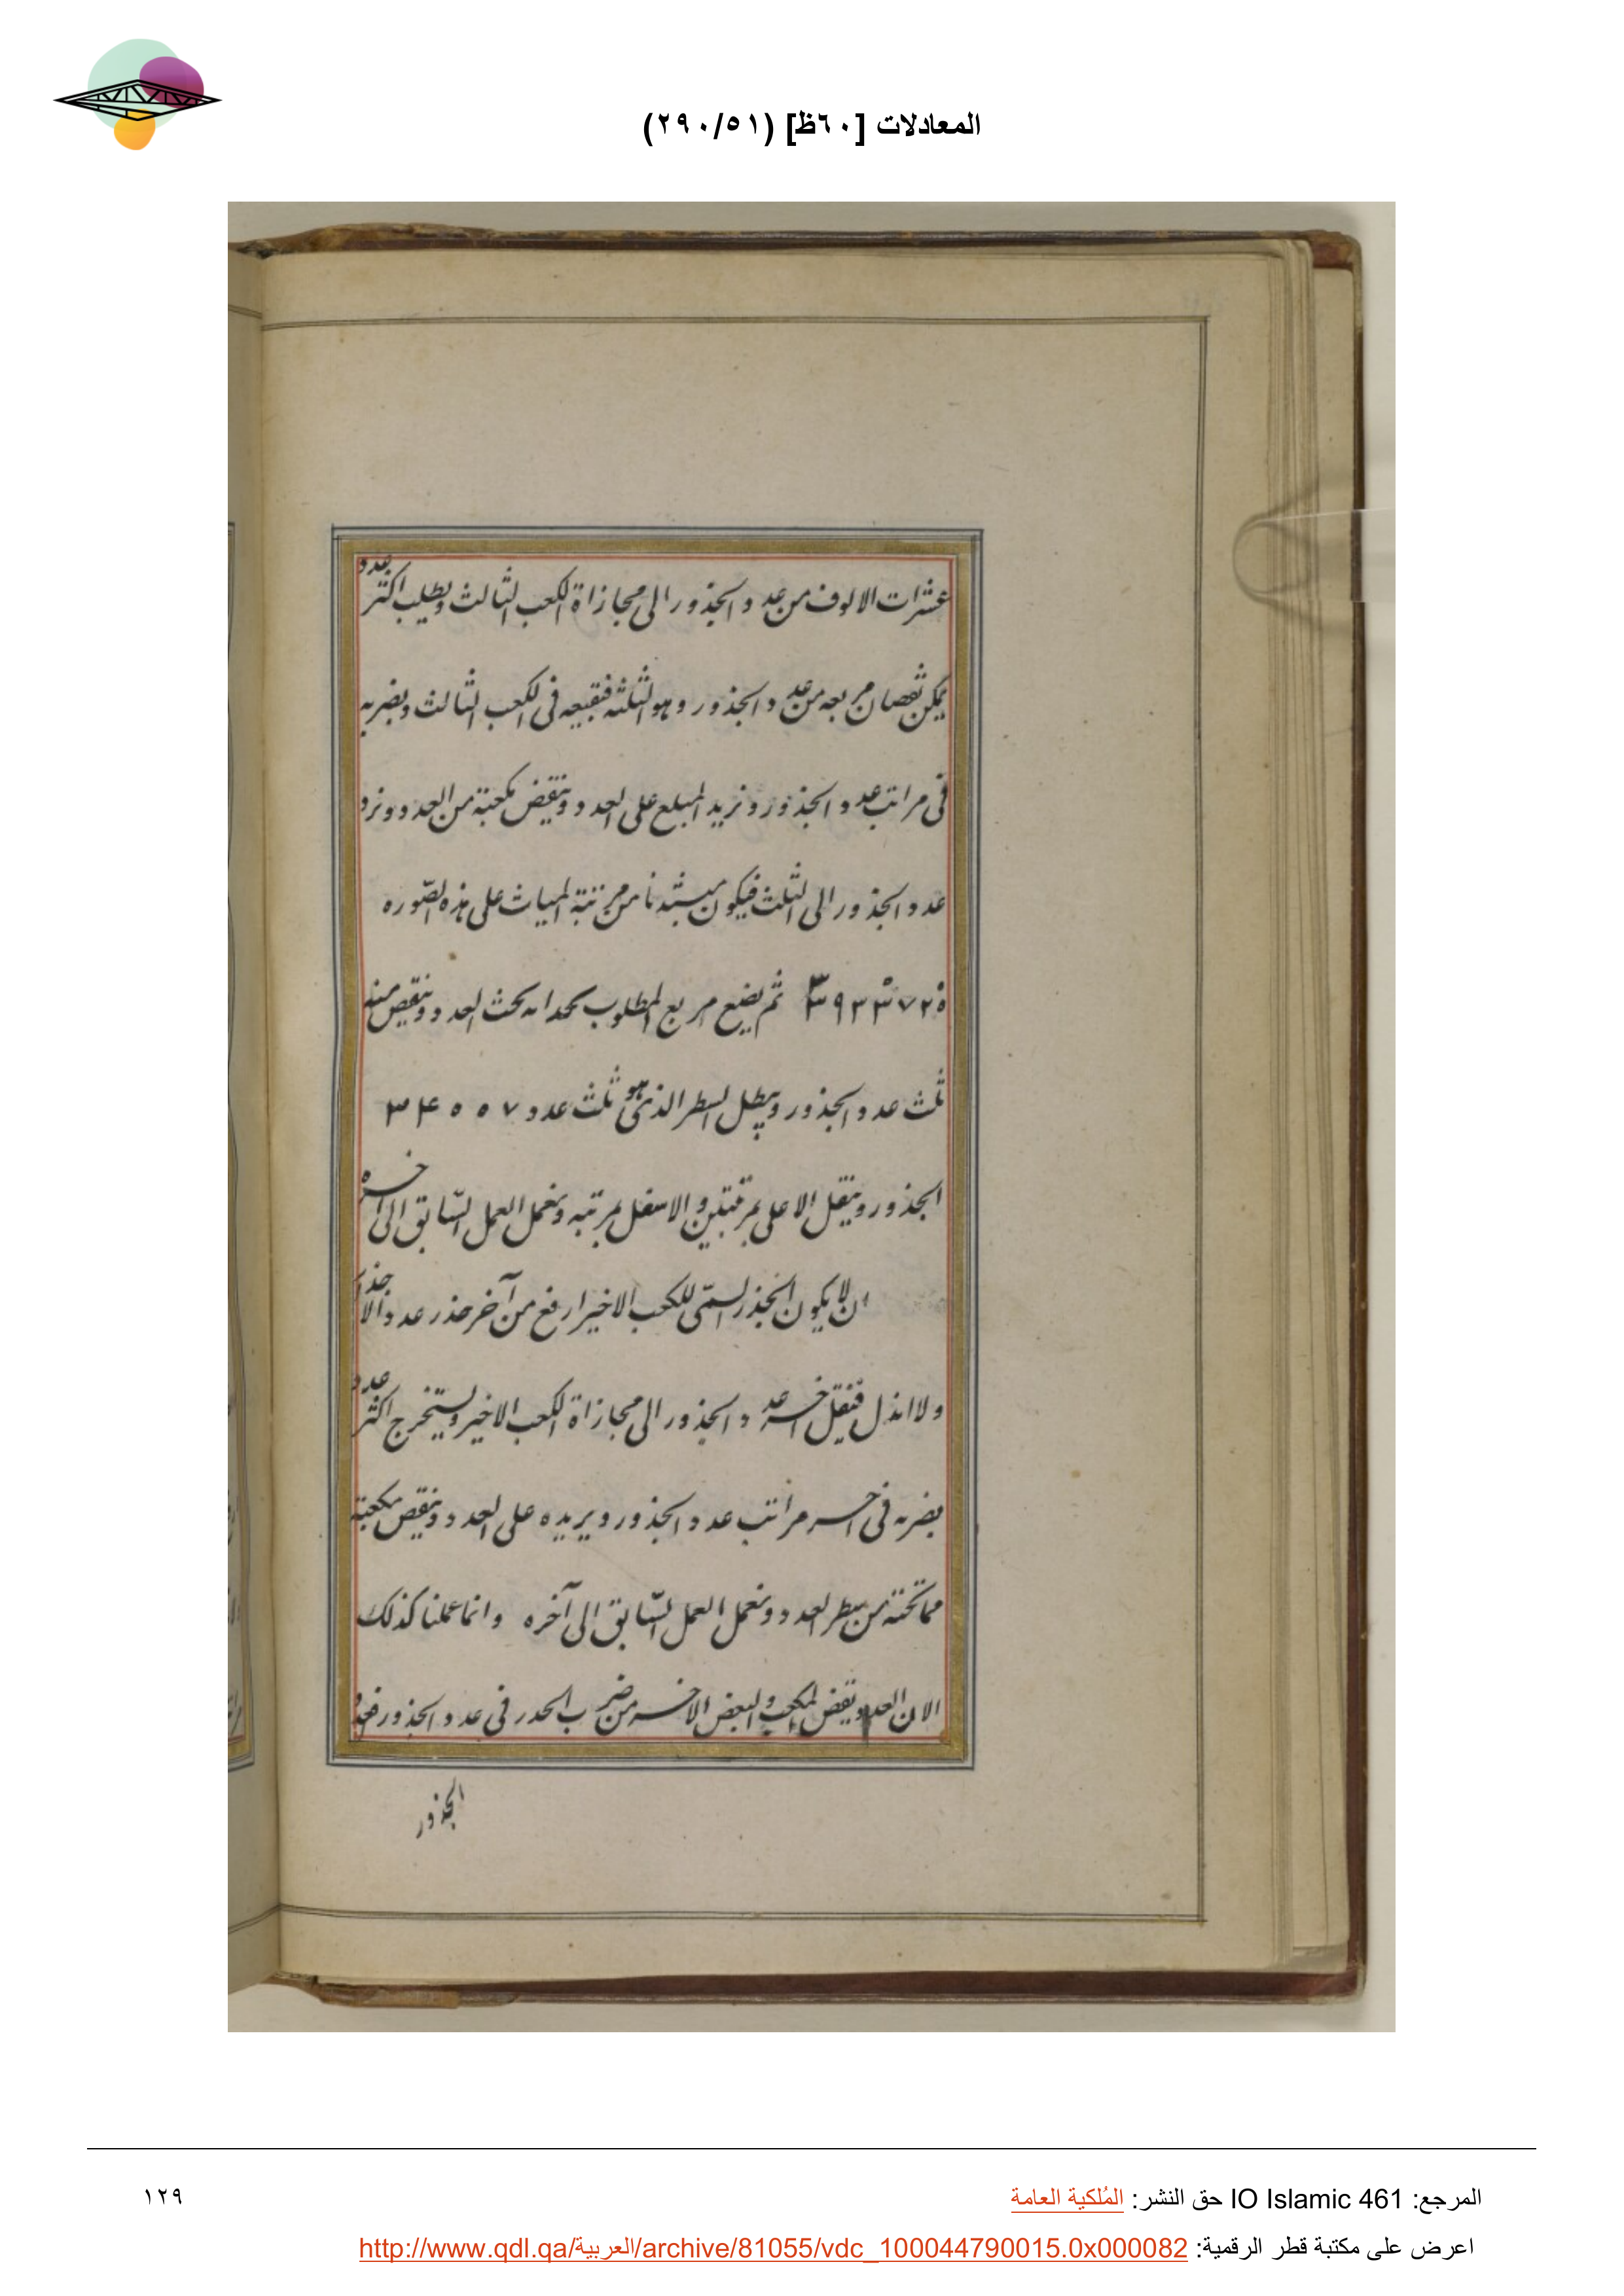 المعادلات [٦٠ظ] (٢٩٠/٥١)
عشرات الالوف من عدد الجذور الى محازاة الكعب الثالث ويطلب اكثر عدد
يمكن نقصان مربعه من عدد الجذور وهو الثلثة فنضعه فى الكعب الثالث ويضربه
فى مراتب عدد الجذور ونزيد المبلغ على العدد وننقض مكعبة من العدد ونرد
عدد الجذور الى الثلث فيكون من مرتبة الميات على هذه الصّوره
٣٩٣٣٧٢٥ ثم يضع مربع المطلوب بحذاه تحث العدد وينقص منه
ثلث عدد الجذور ويبطل السطر الذى هو ثلث عدد ٣٤٥٥٧
الجذور وينقل الاعلى بمرتبتين والاسفل بمرتبه ونعمل العمل السّابق الى اخره
ان لا يكون الجذر السمّى للكعب الاخير ارفع من آخر جذر عدد الاجذار
ولا انذل فنقل اخر عدد الجذور الى محازاة الكعب الاخير ويستخرج اكثر عدد
يضربه فى اخر مراتب عدد الجذور ويزيده على العدد وينقص مكعبة
مما تحته من سطر العدد ونعمل العمل السّابق الى آخره وانما عملنا كذلك
الان العدد يقض المكعب والبعض الاخر من ضرب الجذر فى عدد الجذور فعدد
الجذور
المرجع: IO Islamic 461 حق النشر: المُلكية العامة
١٢٩
اعرض على مكتبة قطر الرقمية: http://www.qdl.qa/العربية/archive/81055/vdc_100044790015.0x000082